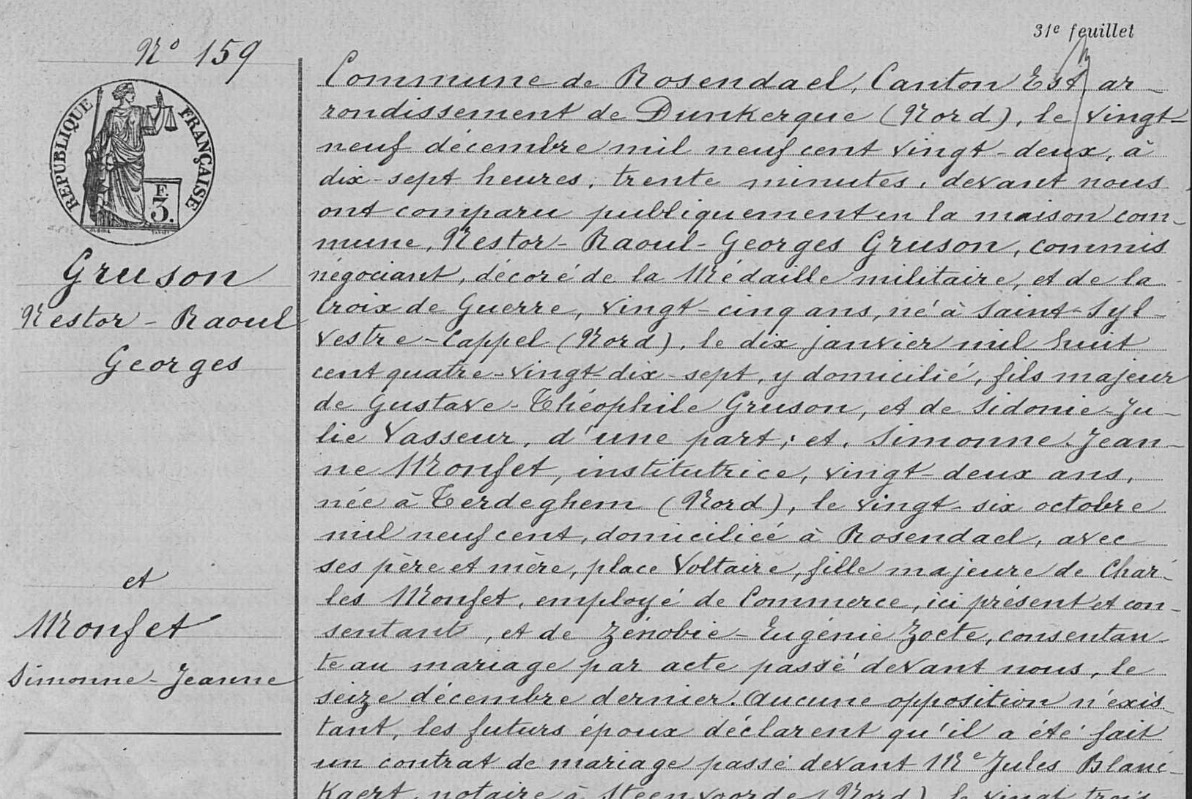 31e feuillet
No 159
RÉPUBLIQUE FRANÇAISE
F.
3.
Gruson
Nestor-Raoul
Georges
et
Monfet
Simonne-Jeanne
Commune de Rosendael, Canton Est ar-
rondissement de Dunkerque (Nord), le vingt-
neuf décembre mil neuf cent vingt-deux, à
dix-sept heures, trente minutes, devant nous
ont comparu publiquement en la maison com-
mune, Nestor-Raoul-Georges Gruson, commis
négociant, décoré de la Médaille militaire, et de la
croix de Guerre, vingt-cinq ans, né à Saint-Syl-
vestre-Cappel (Nord), le dix janvier mil huit
cent quatre-vingt-dix-sept, y domicilié, fils majeur
de Gustave-Théophile Gruson, et de Sidonie-Ju-
lie Vasseur, d'une part; et, Simonne-Jean-
ne Monfet, institutrice, vingt-deux ans,
née à Terdeghem (Nord), le vingt-six octobre
mil neuf cent, domiciliée à Rosendael, avec
ses père et mère, place Voltaire, fille majeure de Char-
les Monfet, employé de Commerce, ici présent et con-
sentant, et de Zénobie-Eugénie Zoete, consentan-
te au mariage par acte passé devant nous, le
seize décembre dernier. Aucune opposition n'exis-
tant, les futurs époux déclarent qu'il a été fait
un contrat de mariage passé devant Me Jules Blanc-
kaert, notaire à Steenvoorde (Nord), le vingt trois